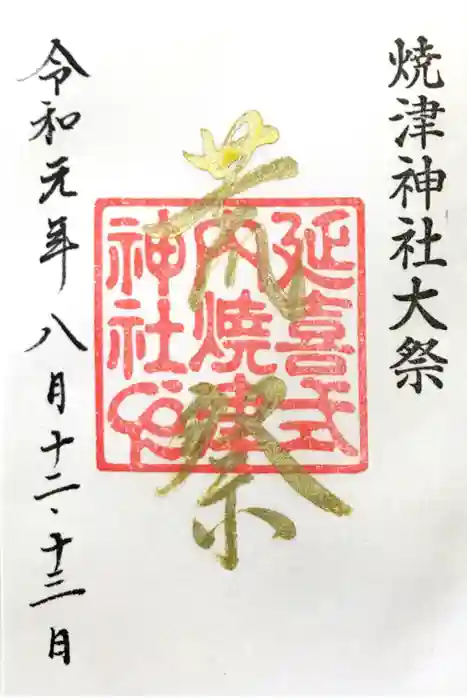 焼津神社大祭
荒祭
延喜式
内焼津
神社印
令和元年八月十二・十三日